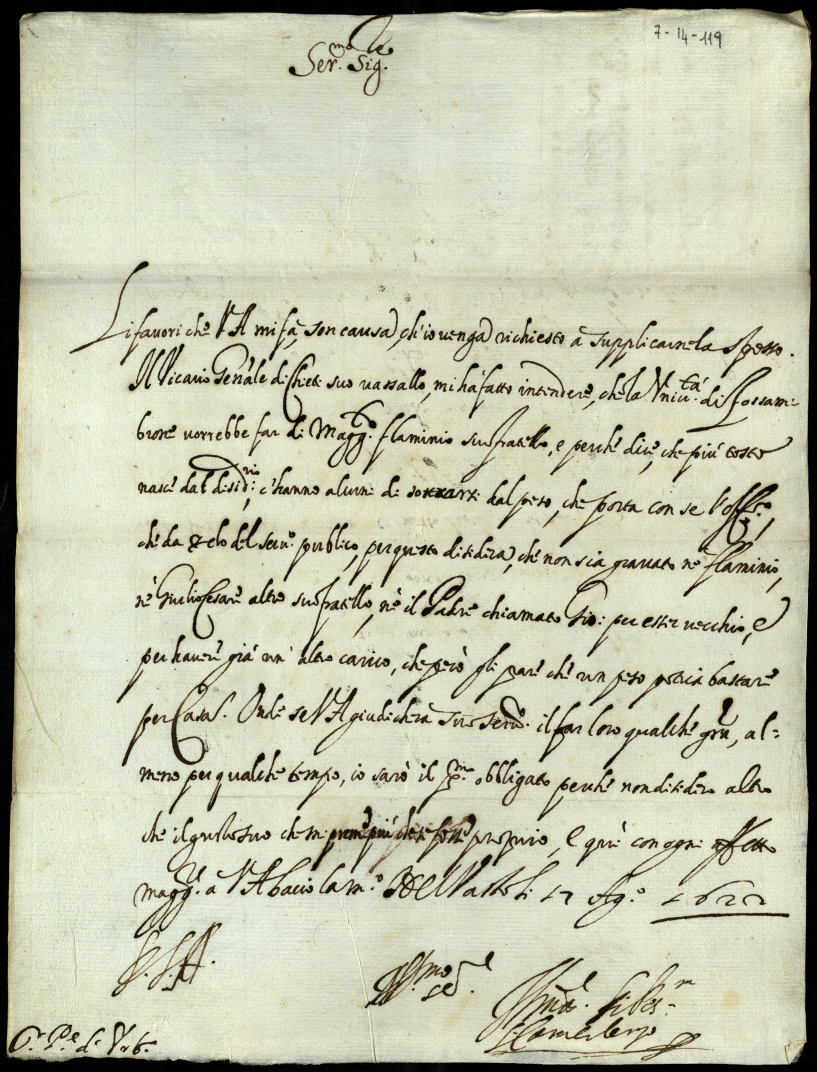 7-14-119
Ser.ma Sig.le
Li favori che V A mi fa, son causa, ch'io venga richiesto à supplicarnela spesso.
Il Vicario Gen'ale di Chieti suo vassallo, mi hà fatto intendere, che la Vniu.tà di Fossam=
brone vorrebbe far di Magg.to flaminio suo fratello, e perche dice, che più tosto
nasce dal disid.rio, c'hanno alcuni di sottrarsi dal peso, che porta con se l'off.o,
che da zelo del seru.o publico, per questo disidera, che non sia gravato nè flaminio,
nè Giulio Cesare altro suo fratello, nè il Padre chiamato Gio: per esser vecchio, e
per havere già un' altro carico, che però gli pare che un peso possa bastare
per Casa. Onde se V A giudicherà suo seru.o il far loro qualche gra, al=
meno per qualche tempo, io sarò il p.mo obbligato perche non disidero altro
che il gusto suo che mi preme più che se fosse proprio, e qui con ogni affetto
magg.re à V A bacio la m.o Del Vasto li 17 Ag.o 1622
V. S. A.
Aff.mo se.
S.r P.e d'Vrb.o